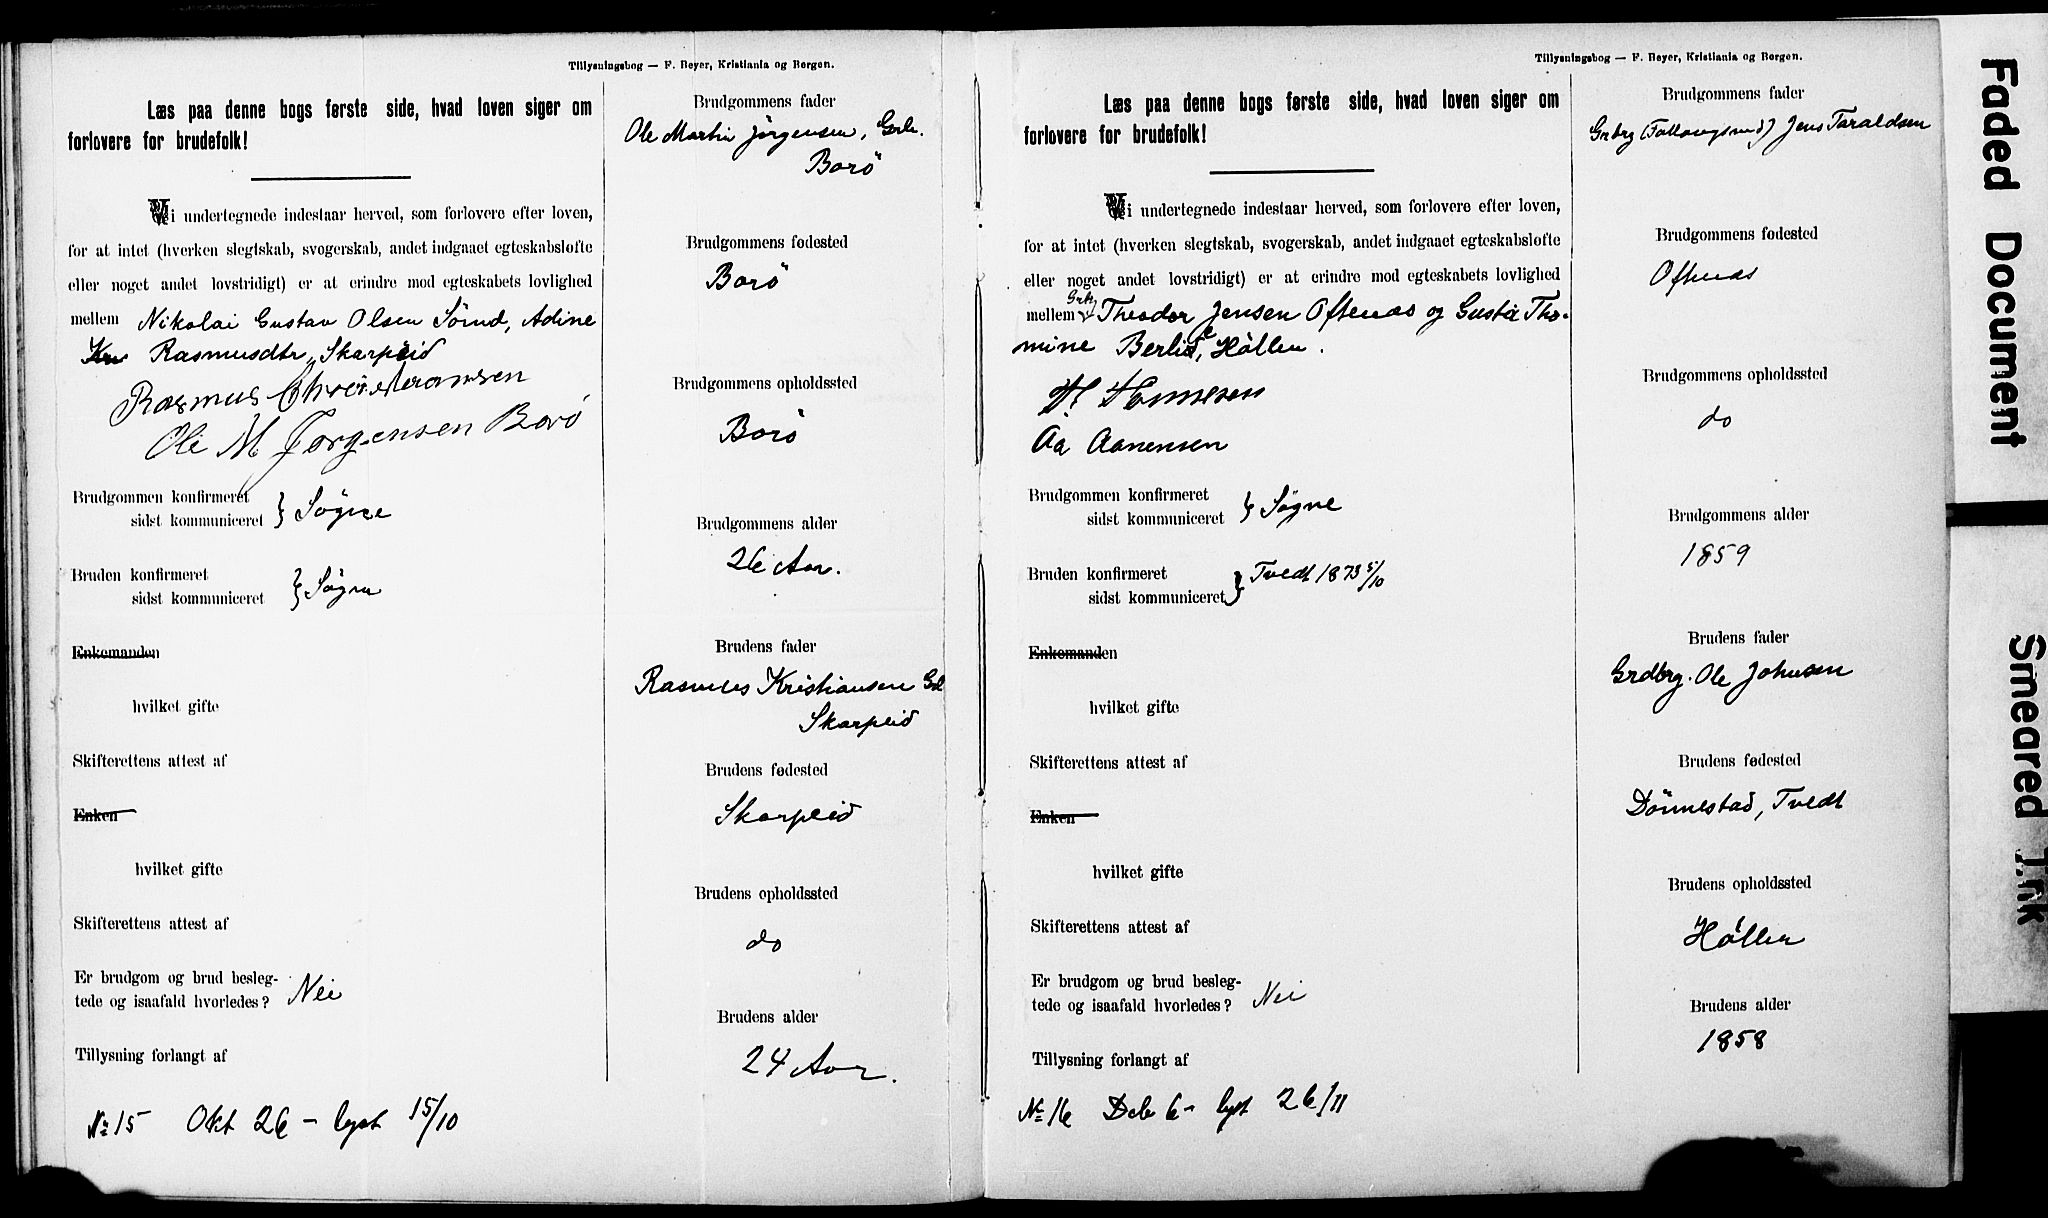 Tillysningsbog — F. Beyer, Kristiania og Bergen.
Læs paa denne bogs første side, hvad loven siger om
forlovere for brudefolk!
Vi undertegnede indestaar herved, som forlovere efter loven,
for at intet (hverken slegtskab, svogerskab, andet indgaaet egteskabsløfte
eller noget andet lovstridigt) er at erindre mod egteskabets lovlighed
mellem Nikolai Gustav Olsen Sörnd, Adine
Rasmusdtr, Skarpeid
Rasmus Christiansen
Ole M Jørgensen Borö
Brudgommen konfirmeret
sidst kommuniceret } Søgne
Bruden konfirmeret
sidst kommuniceret } Søgne
Enkemanden
hvilket gifte
Skifterettens attest af
Enken
hvilket gifte
Skifterettens attest af
Er brudgom og brud besleg-
tede og isaafald hvorledes? Nei
Tillysning forlangt af
No 15 Okt 26 – lyst 15/10
Brudgommens fader
Ole Martin Jörgensen, Grbr.
Borö
Brudgommens fødested
Borö
Brudgommens opholdssted
Borö
Brudgommens alder
26 Aar.
Brudens fader
Rasmus Kristiansen
Skarpeid
Brudens fødested
Skarpeid
Brudens opholdssted
do
Brudens alder
24 Aar.
Tillysningsbog — F. Beyer, Kristiania og Bergen.
Læs paa denne bogs første side, hvad loven siger om
forlovere for brudefolk!
Vi undertegnede indestaar herved, som forlovere efter loven,
for at intet (hverken slegtskab, svogerskab, andet indgaaet egteskabsløfte
eller noget andet lovstridigt) er at erindre mod egteskabets lovlighed
mellem Theodor Jensen Oftenæs og Gusta Tho-
mine Berlie, Höllen.
Aa Aanensen
Brudgommen konfirmeret
sidst kommuniceret } Søgne
Bruden konfirmeret
sidst kommuniceret } Tvedt 1873 5/10
Enkemanden
hvilket gifte
Skifterettens attest af
Enken
hvilket gifte
Skifterettens attest af
Er brudgom og brud besleg-
tede og isaafald hvorledes? Nei
Tillysning forlangt af
No 16 Dcb 6 – lyst 26/11
Brudgommens fader
Jens Taraldsen
Brudgommens fødested
Oftenæs
Brudgommens opholdssted
do
Brudgommens alder
1859
Brudens fader
Grdbrg. Ole Johnsen
Brudens fødested
Dönnestad, Tvedt
Brudens opholdssted
Höllen
Brudens alder
1858
Faded Document
Smeared Ink